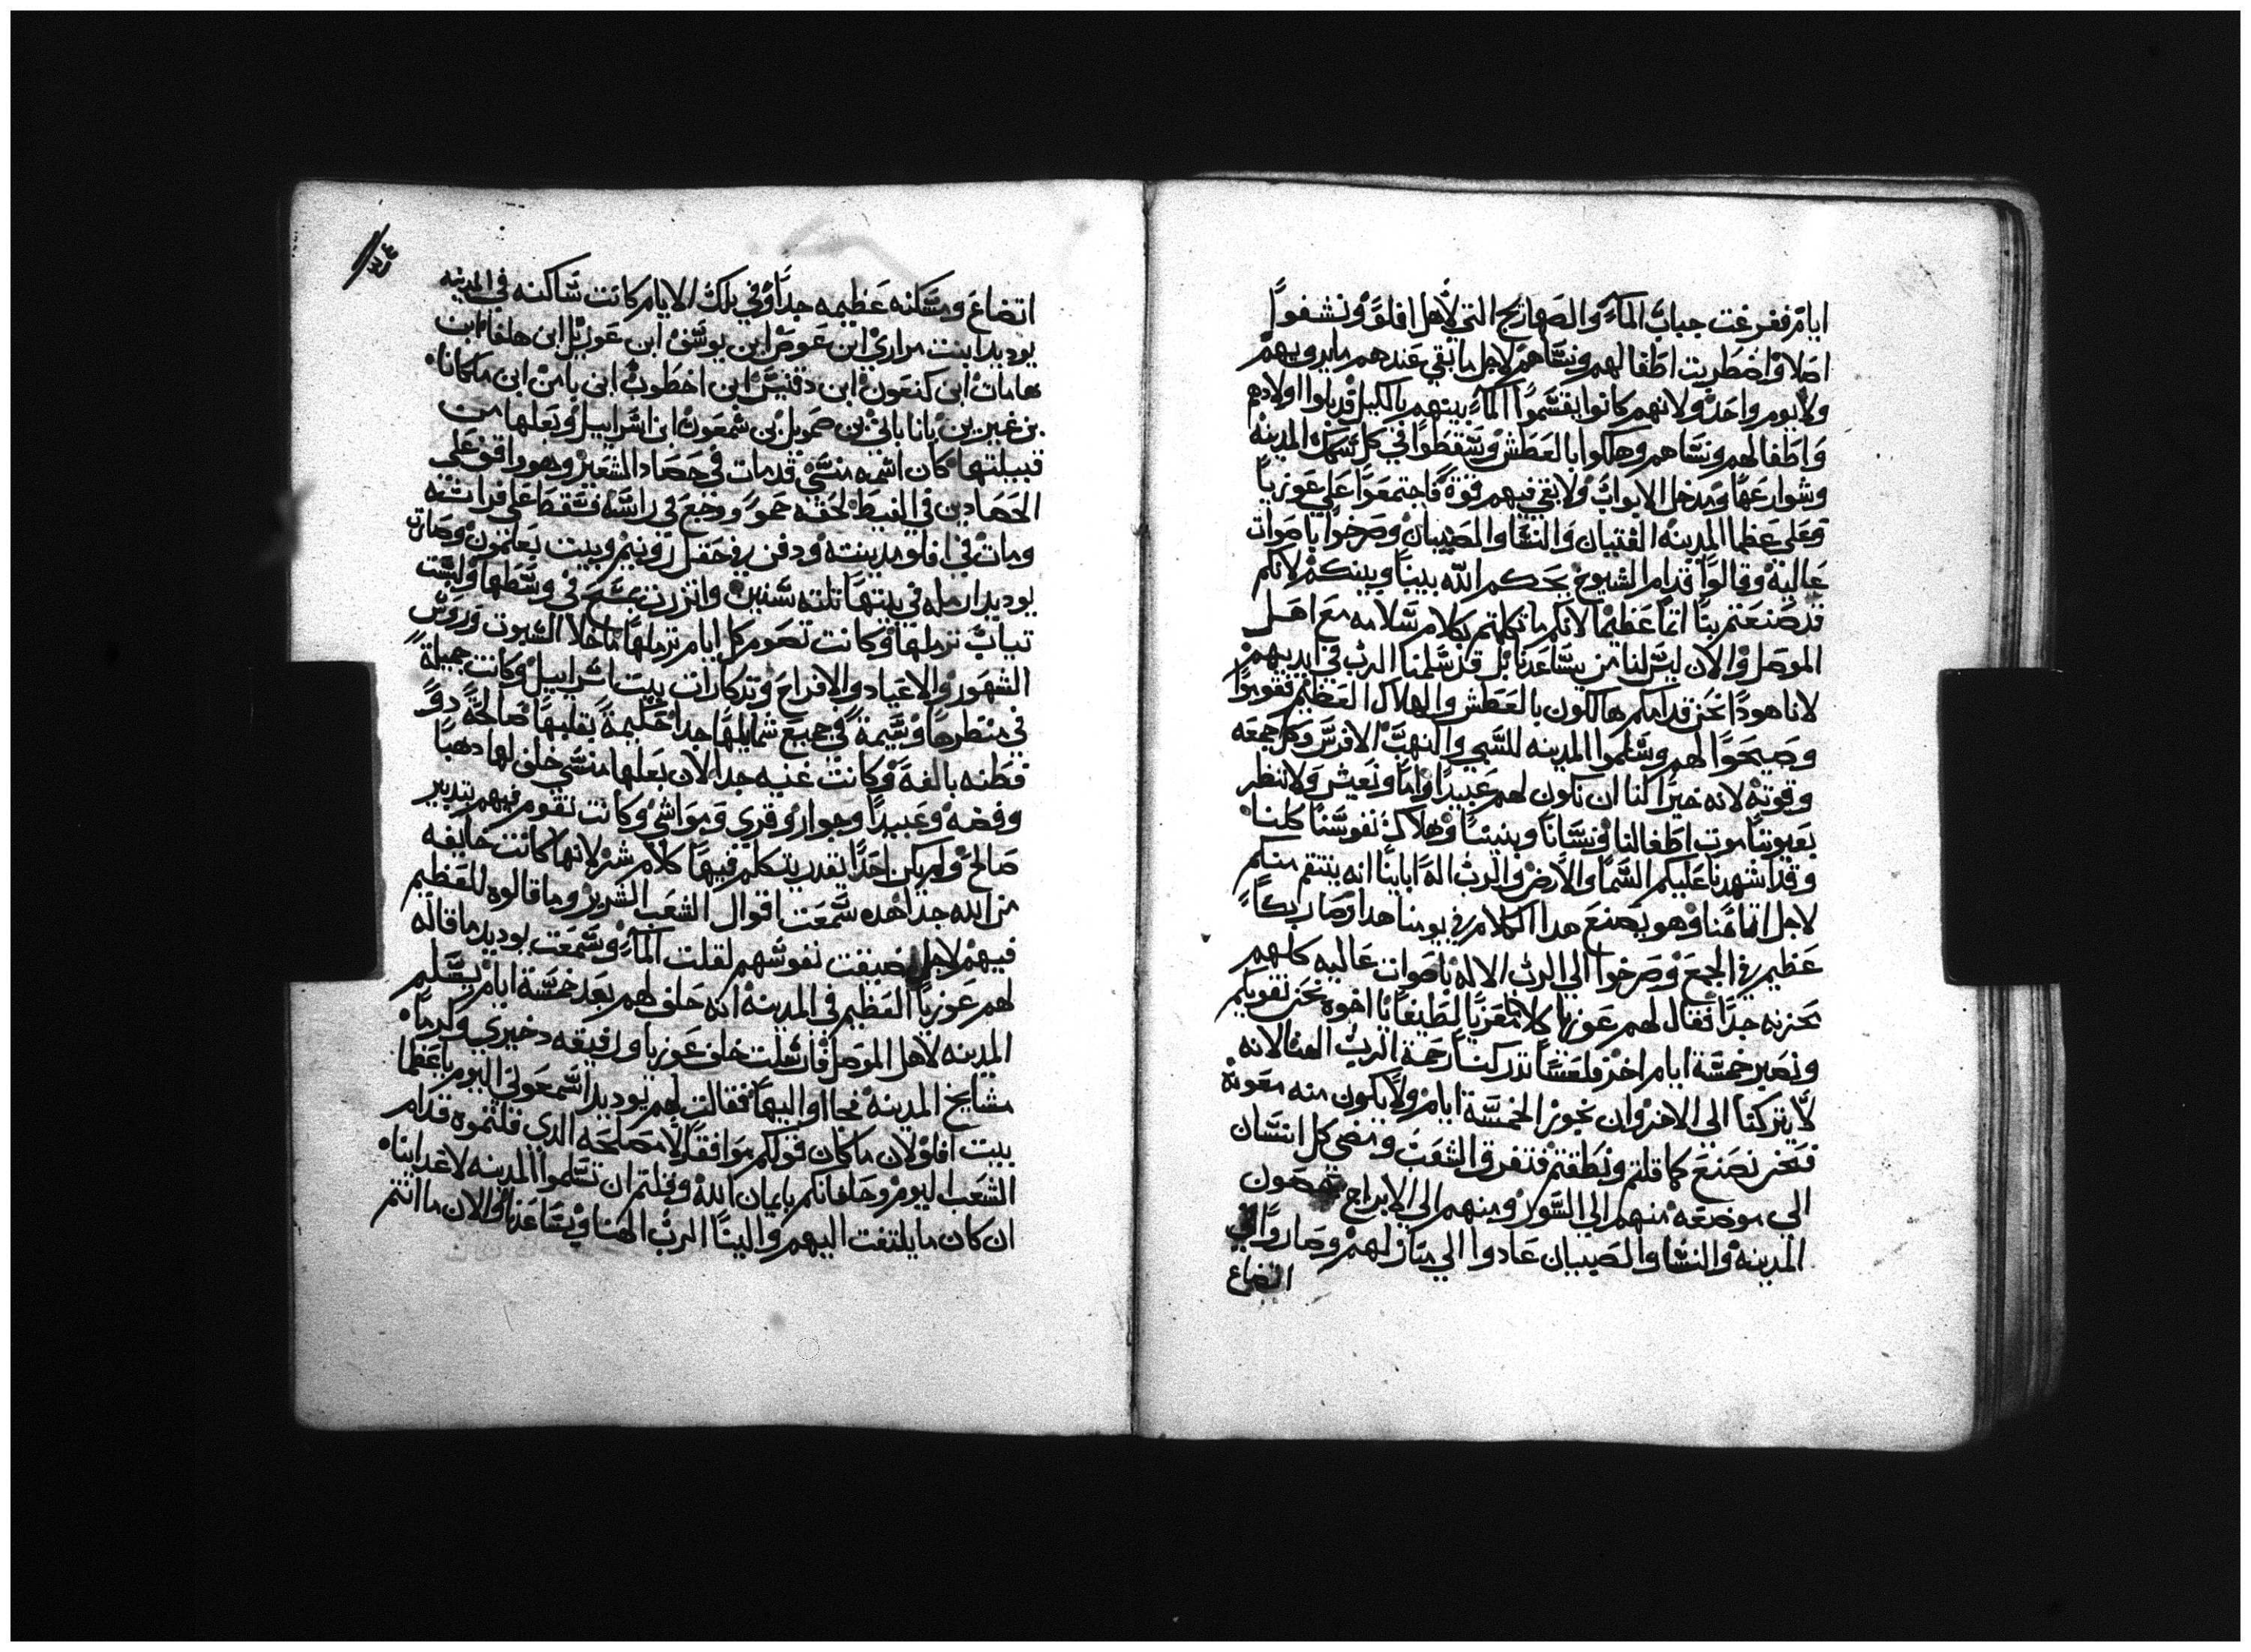 ايام ففرغت جباب المآء والصهاريج التي لأهل افلوَ ونشفوا
اصلا واضطربت اطفالهم ونساهم لاجل ما بقي عندهم ما يرويهم
ولا يوم واحد ولانهم كانوا يقسموا المآء بينهم بالكيل قد باوا اولادهم
واطفالهم ونساهم وهلكوا بالعطش وسقطوا في كل سكك المدينه
وشوارعها ومدخل الابواب ولا بقي فيهم قوة فاجتمعوا علي عوزيا
وعلي عظما المدينه الفتيان والنسا والصبيان وصرخوا باصوات
عالية وقالوا قدام الشيوخ يحكم الله بيننا وبينكم لانكم
قد صنعتم بنا اثما عظيما لانكم ما تكلمتم بكلام سلامه مع اهل
الموصل والان ليس لنا من يساعدنا بل قد سلمنا الرب في ايديهم
لانا هوذا نحن قدامكم هالكون بالعطش والهلاك العظيم فقوموا
وصيحوا لهم وسلموا المدينه للسبي والنهب الافرس وكل جمعه
وقوته لانه خيرا لنا ان نكون لهم عبيدا واما ونعيش ولا ننظر
بعيوننا موت اطفالنا ونسانا وبنينا وهلاك نفوسنا كلنا
وقد اشهدنا عليكم السما والارض والرب اله ابانا انه ينتقم منكم
لاجل اثامنا وهو يصنع هدا الكلام في يومنا هدا وصار بكاً
عظيم في الجمع وصرخوا الي الرب الاله باصوات عاليه كلهم
بحزنه جدا فقال لهم عوزيا كلاما معزيا لطيفا يا اخوه نحن نقويكم
ونصبر خمسة ايام اخر فلعسا تدركنا رحمة الرب الهنا لانه
لا يتركنا الي الاخر وان نجوز الخمسة ايام ولا يكون منه معونة
فنحن نصنع كما قلتم ونطقتم فتفرق الشعب ومضي كل انسان
الي موضعه منهم الي السور ومنهم الي الابراج يحصون
المدينه والنسا والصبيان عادوا الي منازلهم وصاروا في
اتضاع
٣٤
اتضاع ومسكنه عظيمه جدا وفي تلك الايام كانت ساكنه في المدينه
يوديد ابنت مراري ابن عوص ابن يوسف ابن عوزيل ابن هلفا ابن
هامات ابن كنعون ابن دقنيس ابن اخطوب ابن يامن ابن ملكانا
بن غبرين بن يانا باني بن صمويل بن شمعون ابن اسراييل وبعلها من
قبيلتها كان اسمه منسي قد مات في حصاد الشعير وهو واقف علي
الحصادين في الغيط لحقه حمو ووجع في راسه فسقط علي فراشه
ومات في افلو مدينته ودفن في حقل رونيم وبيت يعلمون وصارت
يوديد ارمله في بيتها ثلثه سنين واتزرت بمسح في وسطها ولبست
تياب ترملها وكانت تصوم كل ايام ترملها ما خلا السبوت وروس
الشهور والاعياد والافراح وتدكارات بيت اسراييل وكانت جميلة
في منظرها وسيمة في جميع شمايلها جدا حكيمة بقلبها صالحة دو
فطنه بالغة وكانت غنيه جدا لان بعلها منسي خلف لها دهبا
وفضه وعبيدا وجوار وقري ومواشي وكانت تقوم فيهم بتدبير
صالح ولم يكن احدا يقدر يتكلم فيها كلام شر لانها كانت خايفه
من الله جدا هده سمعت اقوال الشعب الشرير وما قالوه للعظيم
فيهم لاجل ضيقت نفوسهم لقلت المآء وسمعت يوديد ما قاله
لهم عوزيا العظيم في المدينه انه حلف لهم بعد خمسة ايام يسلم
المدينه لاهل الموصل فارسلت خلف عوزيا ورفيقه دخيري وكرما
مشايخ المدينه فجاوا اليها فقالت لهم يوديد اسمعوني اليوم يا عظما
بيت افلو لان ما كان قولكم موافقا لا مصلحه الذي قلتموه قدام
الشعب اليوم وحلفانكم بايمان الله وقلتم ان تسلموا المدينه لاعداينا
ان كان ما يلتفت اليهم والينا الرب الهنا ويساعدنا والان ما انتم